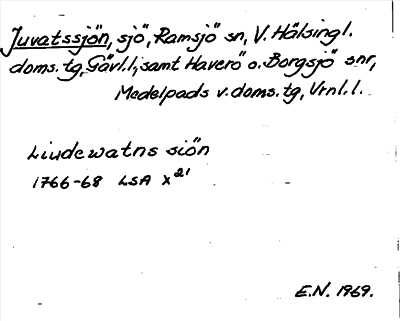 Juvatssjön, sjö, Ramsjö sn, V. Hälsingl.
doms. tg, Gävl.l, samt Haverö o. Borgsjö snr,
Medelpads v. doms. tg, Vrnl. l.
Liudewatns siön
1766-68 LSA X²¹
E.N. 1969.